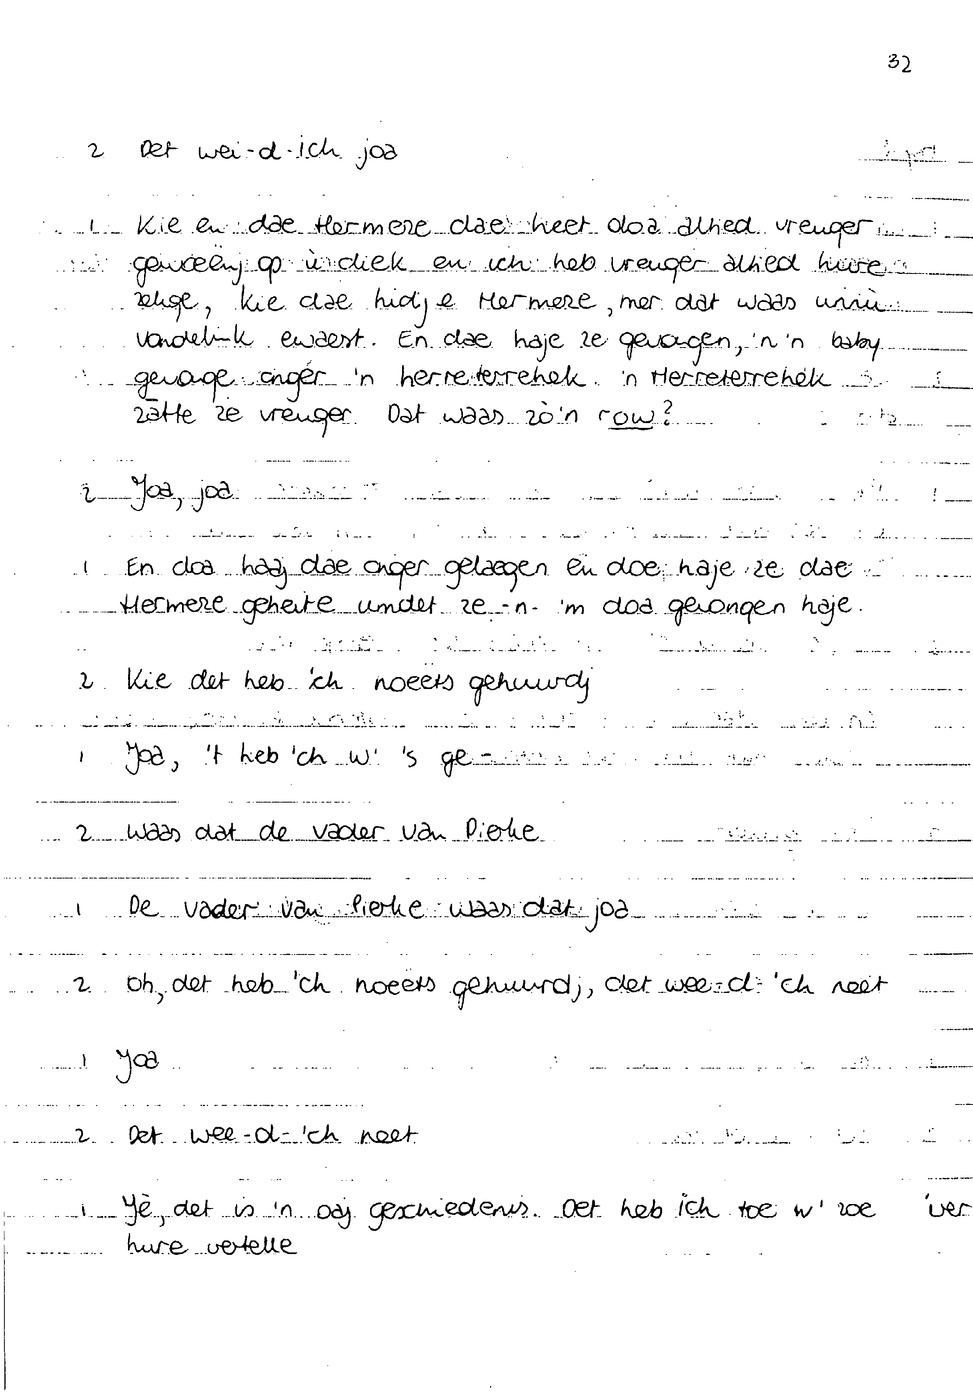 32
2 Det wei-d-ich joa
1 Kie en dae Hermeze dae heet doa alhed vrenger
gewoeënj op ù diek en ich heb vrenger alhed hure
zelige, kie dae hidj e Hermeze, mer dat waas
vandelink ewaest. En dae haje ze gevagen, 'n 'n baby
gevage onger 'n herreterrehek. 'n Herreterrehek
zatte ze vrenger. Dat waas zò'n row?
2 Joa, joa
1 En doa haaj dae onger gelaegen en doe haje ze dae
Hermeze geheite umdet ze -n- 'm doa gevongen haje.
2 Kie det heb 'ch noeëts gehuurdj
1 Joa, 't heb 'ch w' 's ge-
2 Waas dat de vader van Pierke
1 De vader van Pierke waas dat joa
2 Oh, det heb 'ch noeëts gehuurdj, det wee-d-'ch neet
1 Joa
2 Det wee-d-'ch neet
1 Jè, det is 'n oaj geschiedenis. Det heb ich toe w' zoe 'ver
hure vertelle